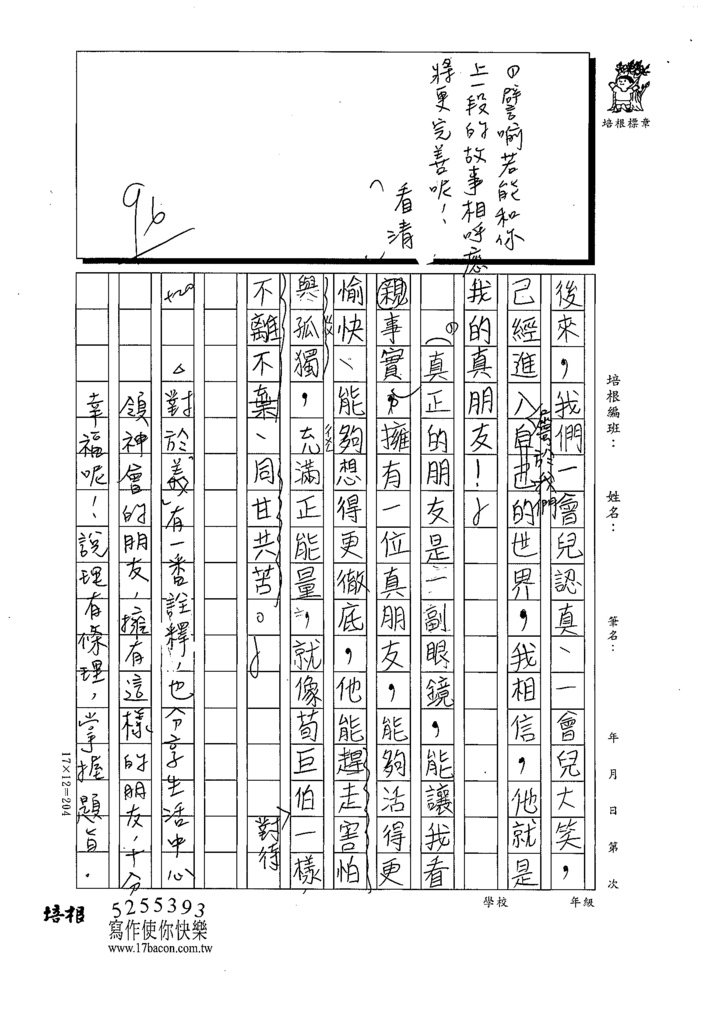 ①譬喻若能和你
上一段的故事相呼應
將更完善呢！
看清
96
培根標章
培根編班：
姓名：
筆名：
年 月 日 第 次
學校
年級
後來，我們一會兒認真、一會兒大笑，
已經進入自己的世界，我相信，他就是
屬於我們
我的真朋友！
①真正的朋友是一副眼鏡，能讓我看
親事實，擁有一位真朋友，能夠活得更
愉快、能夠想得更徹底，他能趕走害怕
與孤獨，充滿正能量，就像荀巨伯一樣
對待
不離不棄、同甘共苦。
△對於「義」有一番詮釋，也分享生活中心
領神會的朋友，擁有這樣的朋友，十分
幸福呢！說理有條理，掌握題旨。
17×12=204
培根
5255393
寫作使你快樂
www.17bacon.com.tw